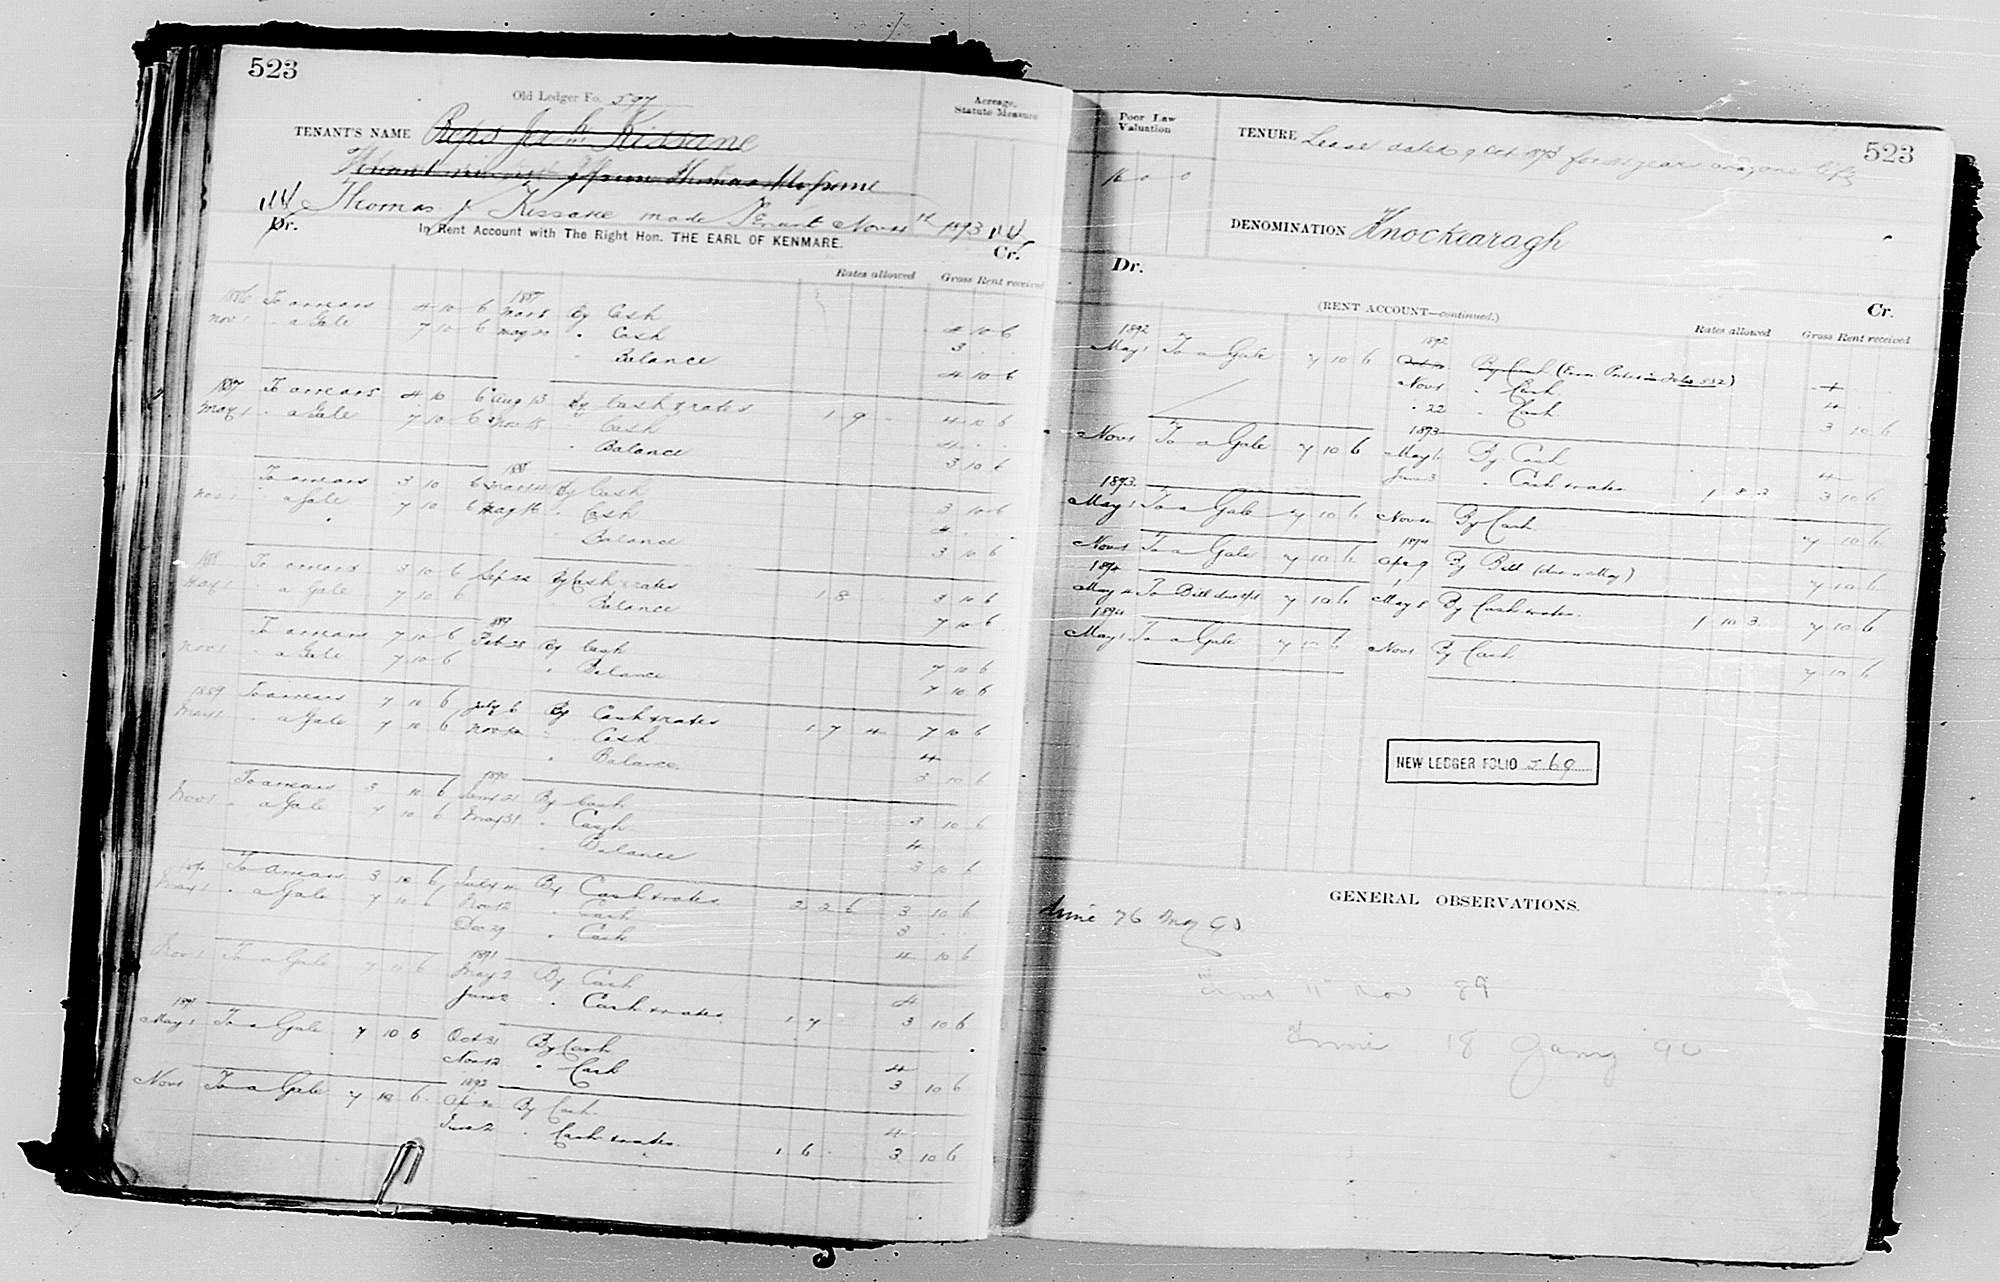 523
Old Ledger Fo. 597
TENANT'S NAME Reps Kissane
Thomas
Thomas J Kissane made Tenant Nov 1893
Dr. In Rent Account with The Right Hon. THE EARL OF KENMARE. Cr.
Acreage, Statute Measure
Rates allowed Gross Rent received
1886 To arrears 4 10 6 1887 Mar 8 By Cash 4 10 6
Nov 1 " a Gale 7 10 6 May 20 " Cash 3 . .
" Balance 4 10 6
1887 To arrears 4 10 6 Aug 13 By Cash & rates 1 9 - 4 10 6
May 1 " a Gale 7 10 6 Nov 18 " Cash 4 . .
" Balance 3 10 6
To arrears 3 10 6 1888 Mar 14 By Cash 3 10 6
Nov 1 " a Gale 7 10 6 May 16 " Cash 4 . .
" Balance 3 10 6
1888 To arrears 3 10 6 Sep 22 By Cash & rates 1 8 - 3 10 6
May 1 " a Gale 7 10 6 " Balance 7 10 6
To arrears 7 10 6 1889 Feb 28 By Cash 7 10 6
Nov 1 " a Gale 7 10 6 " Balance 7 10 6
1889 To arrears 7 10 6 July 6 By Cash & rates 1 7 4 7 10 6
May 1 " a Gale 7 10 6 Nov " Cash 4
" Balance 3 10 6
To arrears 3 10 6 1890 Jany 21 By Cash 3 10 6
Nov 1 " a Gale 7 10 6 May 31 " Cash 4
" Balance 3 10 6
1890 To arrears 3 10 6 July 4 By Cash & rates 2 2 6 3 10 6
May 1 " a Gale 7 10 6 Nov 12 " Cash 3 . .
Dec 29 " Cash 4 10 6
Nov 1 To a Gale 7 10 6 1891 May 2 By Cash 4
June 2 " Cash & rates 1 7 3 10 6
1891 May 1 To a Gale 7 10 6 Oct 31 By Cash 4
Nov 12 " Cash 3 10 6
Nov 1 To a Gale 7 10 6 1892 Ap 30 By Cash 4
June 2 " Cash & rates. 1 6 - 3 10 6
523
Poor Law Valuation
16 0 0
TENURE Lease dated 9 Oct 1873 for years and one life
DENOMINATION Knockearagh
Dr. (RENT ACCOUNT—continued.) Cr.
Rates allowed Gross Rent received
1892 May 1 To a Gale 7 10 6 1892 By Cash (Error Posted in folio 532) 4
Nov 1 " Cash 4
" 22 " Cash 3 10 6
Nov 1 To a Gale 7 10 6 1893 May 1 By Cash 4
June 3 " Cash & rates 1 8 3 3 10 6
1893 May 1 To a Gale 7 10 6 Nov By Cash 7 10 6
Nov 1 To a Gale 7 10 6 1894 Apr 9 By Bill (due May) 7 10 6
1894 May 4 To Bill due 7 10 6 May 8 By Cash & rates. 1 10 3 7 10 6
1894 May 1 To a Gale 7 10 6 Nov 1 By Cash 7 10 6
NEW LEDGER FOLIO 569
GENERAL OBSERVATIONS.
Time 26 May 90
Time 11 Nov 89
Time 18 Jany 90